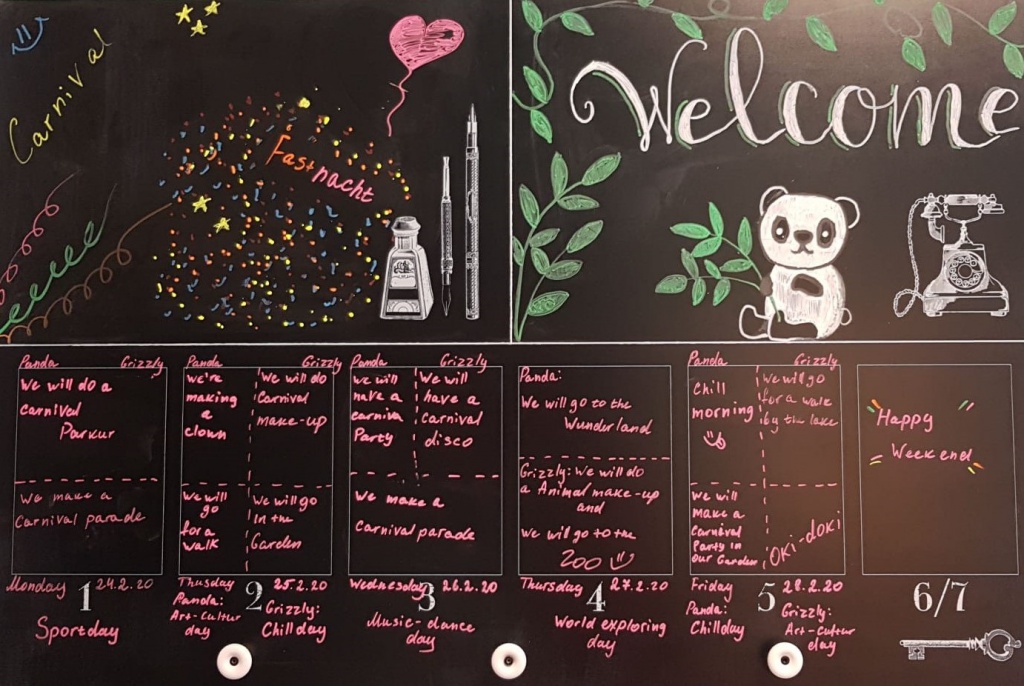 Carnival
Fastnacht
Welcome
Panda Grizzly
We will do a
carnival
Parkur
We make a
Carnival parade
Monday 24.2.20
1
Sportday
Panda Grizzly
we're
making
a
clown
We will do
Carnival
make-up
We will
go
for a
walk
We will go
in the
Garden
Thusday 25.2.20
2
Panda:
Art-Cultur
day
Grizzly:
Chillday
Panda Grizzly
we will
have a
carniva
Party
We will
have a
carnival
disco
We make a
Carnival parade
Wednesday 26.2.20
3
Music-dance
day
Panda:
We will go to the
Wunderland
Grizzly: We will do
a Animal make-up
and
We will go to the
ZOO
Thursday 27.2.20
4
World exploring
day
Panda Grizzly
Chill
morning
We will go
for a walk
by the lake
We will
make a
Carnival
Party in
our Garden
Oki-doki
Friday 28.2.20
5
Panda:
Chillday
Grizzly:
Art-Cultur
day
Happy
Weekend
6/7